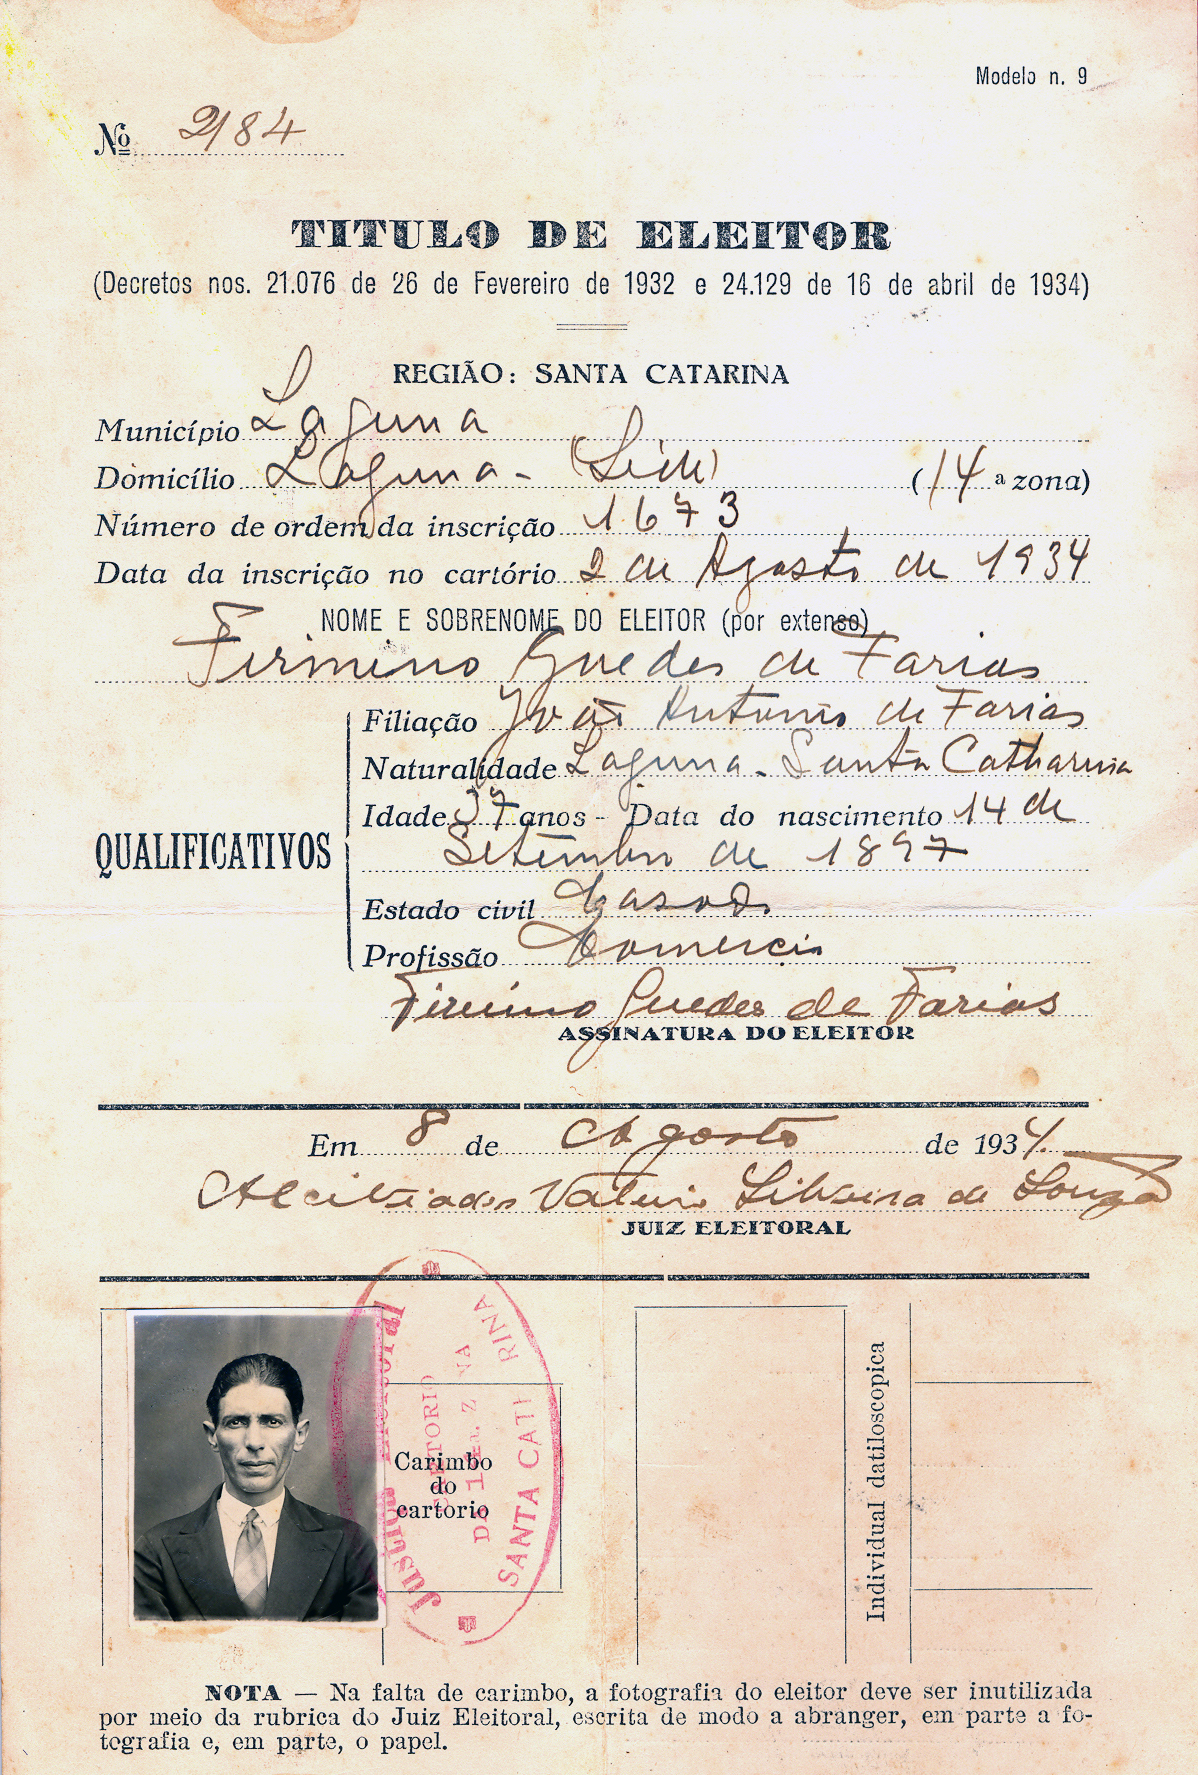 Modelo n. 9
Nº 2184
TITULO DE ELEITOR
(Decretos nos. 21.076 de 26 de Fevereiro de 1932 e 24.129 de 16 de abril de 1934)
REGIÃO: SANTA CATARINA
Município Laguna
Domicílio Laguna - (Séde) (14 a zona)
Número de ordem da inscrição 1673
Data da inscrição no cartório 2 de Agosto de 1934
NOME E SOBRENOME DO ELEITOR (por extenso)
Firmino Guedes de Farias
QUALIFICATIVOS
Filiação João Antonio de Farias
Naturalidade Laguna - Santa Catharina
Idade 37 anos - Data do nascimento 14 de
Setembro de 1897
Estado civil Casado
Profissão Comercio
Firmino Guedes de Farias
ASSINATURA DO ELEITOR
Em 8 de Agosto de 1934.
Alcibiades Valerio Silveira de Souza
JUIZ ELEITORAL
Justiça Eleitoral
CARTORIO
DA 14a. ZONA
SANTA CATARINA
Carimbo
do
cartorio
Individual datiloscopica
NOTA — Na falta de carimbo, a fotografia do eleitor deve ser inutilizada
por meio da rubrica do Juiz Eleitoral, escrita de modo a abranger, em parte a fo-
tografia e, em parte, o papel.